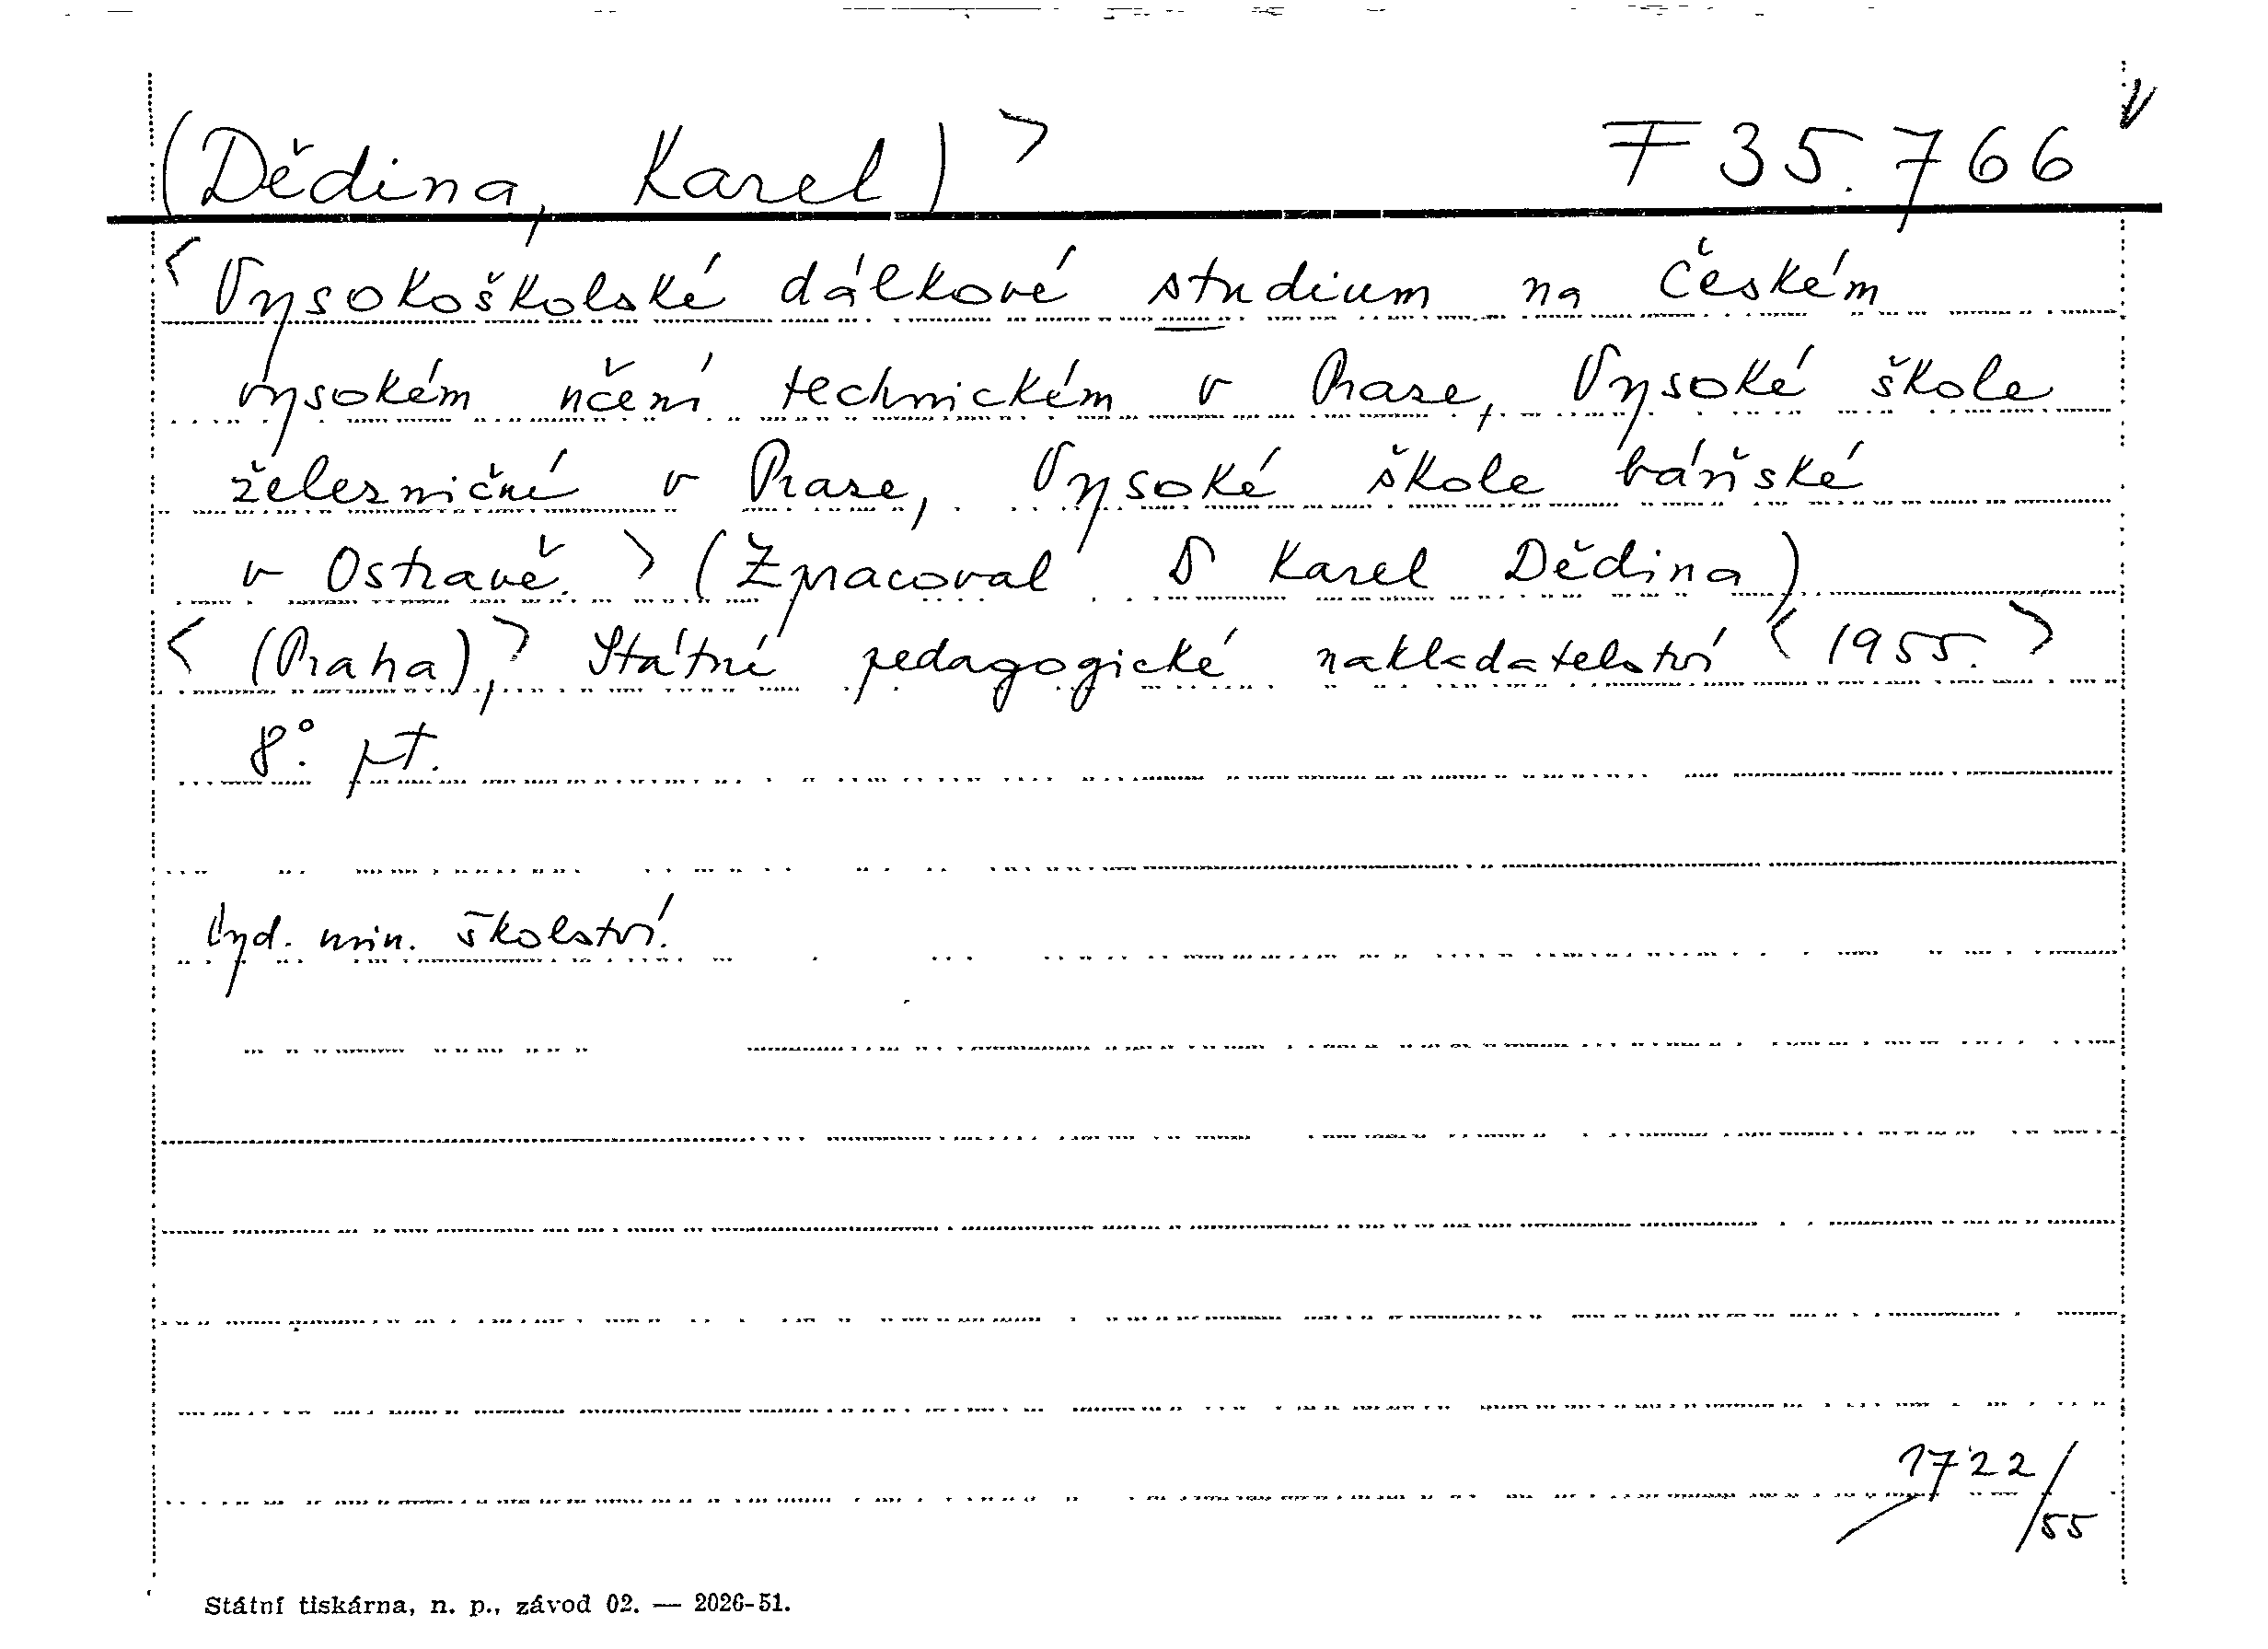 (Dědina, Karel) > F 35.766 v
< Vysokoškolské dálkové studium na Českém
vysokém učení technickém v Praze, Vysoké škole
železniční v Praze, Vysoké škole báňské
v Ostravě. > (Zpracoval Karel Dědina)
< (Praha), > Státní pedagogické nakladatelství < 1955. >
8°. pt.
Vyd. min. školství.
1722/55
Státní tiskárna, n. p., závod 02. — 2026-51.